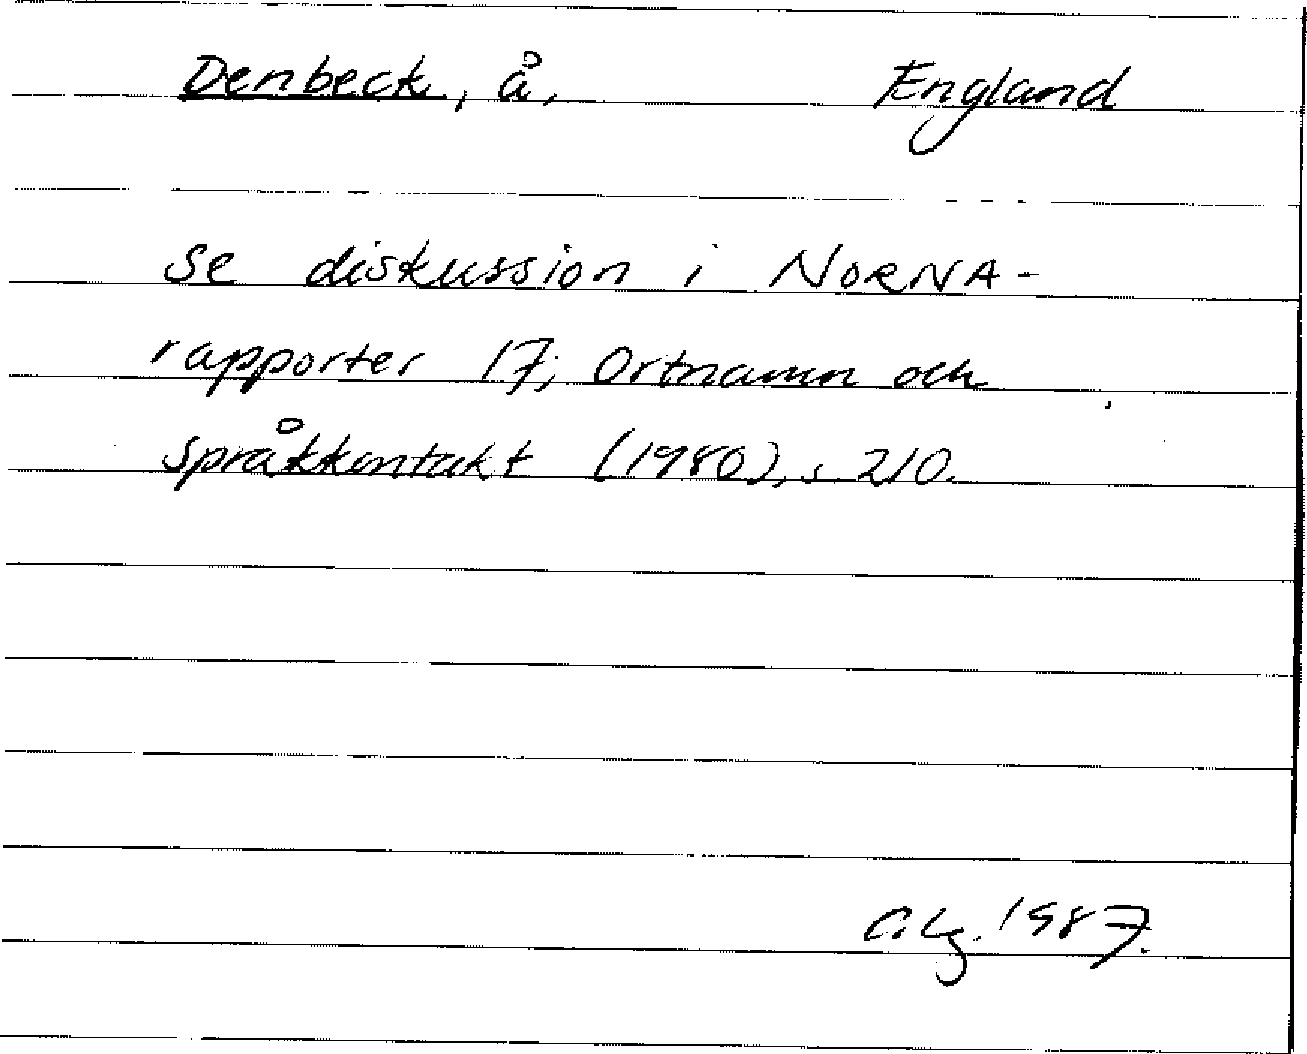 Denbeck, å, England
Se diskussion i NORNA-
rapporter 17; Ortnamn och
språkkontakt (1980), s. 210.
1987.